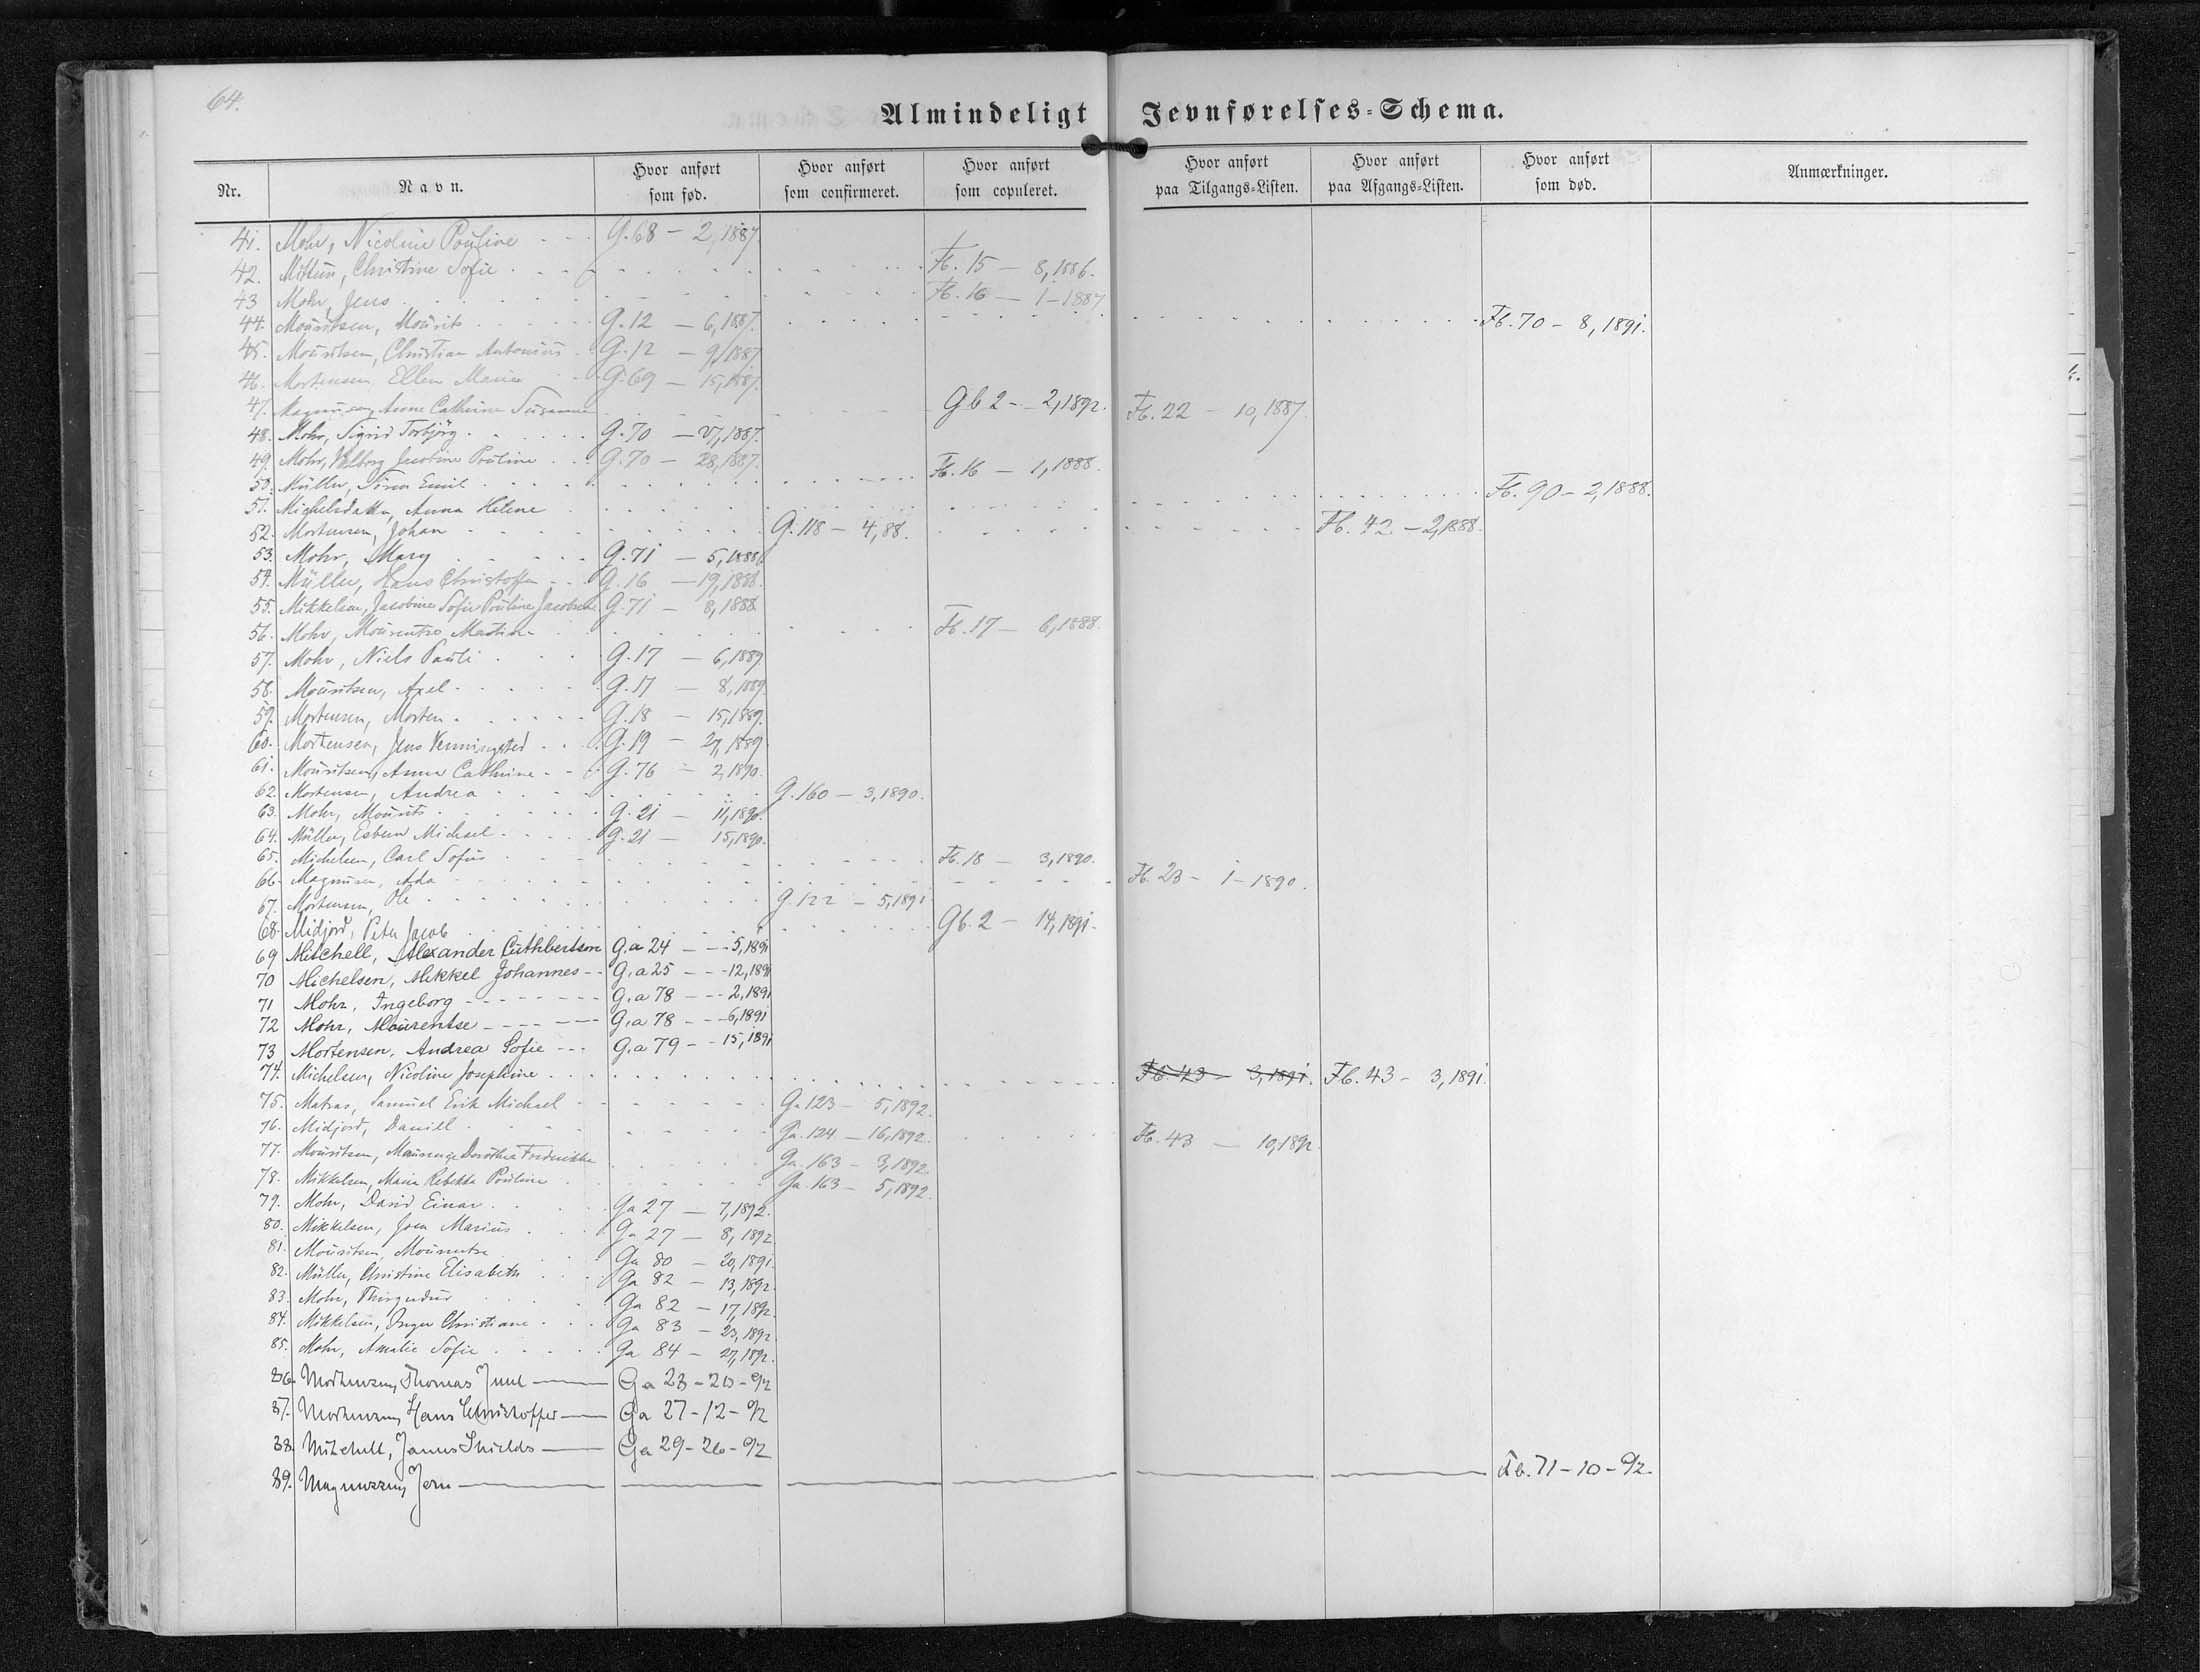 64.
Almindeligt Jevnførelses-Schema.
Nr. Navn. Hvor anført som fød. Hvor anført som confirmeret. Hvor anført som copuleret. Hvor anført paa Tilgangs-Listen. Hvor anført paa Afgangs-Listen. Hvor anført som død. Anmærkninger.
41. Mohr, Nicoline Pouline G. 68 – 2, 1887.
42. Christine Sofie Fb. 15 – 8, 1886.
43 Mohr, Jens Fb. 16 – 1 – 1887
44. Mouritsen, Mourits G. 12 – 6, 1887. Fb. 70 – 8, 1891.
45. Mouritsen, Christian Antonius G. 12 – 9, 1887
46. Mortensen, Ellen Marie G. 69 – 15, 1887.
47. Magnussen, Anne Cathrine Susanne Gb 2 – 2, 1892. Fb. 22 – 10, 1887.
48. Mohr, Sigrid Torbjörg G. 70 – 27, 1887.
49. Mohr, Valborg Jacobine Pouline G. 70 – 28, 1887.
50. Müller, Emil Fb. 16 – 1, 1888.
51. Michelsdatter, Anna Helene Fb. 90 – 2, 1888.
52. Mortensen, Johan G. 118 – 4, 88. Fb. 42 – 2, 1888.
53. Mohr, Mary G. 71 – 5, 1888
54. Müller, Hans Christoffer G. 16 – 19, 1888.
55. Mikkelsen, Jacobine Sofie Pouline G. 71 – 8, 1888
56. Mohr, Mourentse Martine Fb. 17 – 6, 1888.
57. Mohr, Niels Pauli G. 17 – 6, 1889
58. Mouritsen, Axel G. 17 – 8, 1889.
59. Mortensen, Morten G. 18 – 15, 1889.
60. Mortensen, Jens Venningsted G. 19 – 27, 1889
61. Mouritsen, Anna Cathrine G. 76 – 2, 1890.
62. Mortensen, Andrea G. 160 – 3, 1890.
63. Mohr, Mourits G. 21 – 11, 1890.
64. Müller, Esbern Michael G. 21 – 15, 1890.
65. Michelsen, Carl Sofus Fb. 18 – 3, 1890.
66. Magnusen, Ada Fb. 23 – 1 – 1890.
67. Mortensen, Ole G. 122 – 5, 1891
68. Midjord, Peter Jacob Gb. 2 – 14, 1891.
69 Mitchell, Alexander Cuthbertson G. a 24 – – 5, 1891
70 Michelsen, Mikkel Johannes G. a 25 – – 12, 1891
71 Mohr, Ingeborg G. a 78 – – 2, 1891
72 Mohr, Mourentse G. a 78 – – 6, 1891
73 Mortensen, Andrea Sofie G. a 79 – – 15, 1891
74. Michelsen, Nicoline Josephine Fb. 43 – 3, 1891. Fb. 43 – 3, 1891.
75. Matras, Samuel Erik Michael Ga 123 – 5, 1892.
76. Midjord, Daniel Ga. 124 – 16, 1892. Fb. 43 – 10, 1892.
77. Mouritsen, Dorothea Frederikke Ga. 163 – 3, 1892.
78. Mikkelsen, Maria Rebekka Pouline Ga. 163 – 5, 1892.
79. Mohr, David Einar Ga 27 – 7, 1892.
80. Mikkelsen, Joen Marius Ga 27 – 8, 1892
81. Mouritsen, Mourentse Ga 80 – 20, 1891.
82. Müller, Christine Elisabeth Ga 82 – 13, 1892.
83. Mohr, Ga 82 – 17, 1892
84. Mikkelsen, Inger Christiane Ga 83 – 23, 1892
85. Mohr, Amalie Sofie Ga 84 – 27, 1892.
86. Mortensen, Thomas Juul Ga 23 – 20 – 92
87. Mortensen, Hans Christoffer Ga 27 – 12 – 92
88. Mitchell, James Shields Ga 29 – 26 – 92
89. Magnussen, Jens Fb. 71 – 10 – 92.